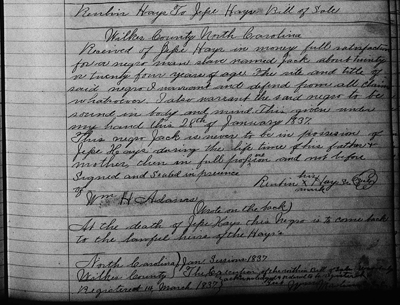 Reubin Hays To Jepe Hays Bill of Sale
Wilkes County North Carolina
Received of Jepe Hays in money full satisfaction
for a negro man slave named Jack about twenty
or twenty four years of age. The rite and title of
said negro I warrant and defend from all claims
whatsoever. I also warrant the said negro to be
sound in body and mind. This given under
my hand this 28th of January 1837.
This negro Jack is never to be in possession of
Jepe Hays during the life time of his father &
mother, then in full possession and not before
Signed and Sealed in presence
of Reubin his X mark Hays Sr (Seal)
Wm H Adams
(Wrote on the back)
At the death of Jepe Hays this Negro is to come back
to the lawful heirs of the Hays's
North Carolina) Jan Session 1837
Wilkes County ) The Execution of the within Bill of
Registered 14 March 1837)